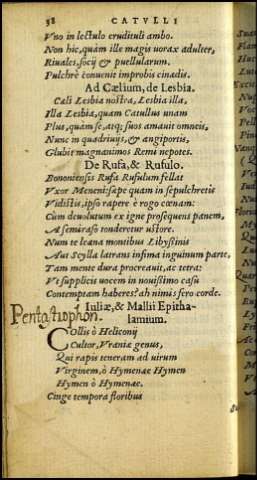 58 CATVLLI
Vno in lectulo erudituli ambo.
Non hic, quàm ille magis uorax adulter,
Riuales, socij & puellularum.
Pulchrè conuenit improbis cinædis.
Ad Cælium, de Lesbia.
Cæli Lesbia nostra, Lesbia illa,
Illa Lesbia, quam Catullus unam
Plus, quàm se, atq; suos amauit omneis,
Nunc in quadriuijs, & angiportis,
Glubit magnanimos Remi nepotes.
De Rufa, & Rufulo.
Bononiensis Rufa Rufulum fellat
Vxor Meneni: sæpe quam in sepulchretis
Vidistis, ipso rapere è rogo cœnam:
Cum deuolutum ex igne prosequens panem,
A semiraso tonderetur ustore.
Num te leæna montibus Libyssinis
Aut Scylla latrans infima inguinum parte,
Tam mente dura procreauit, ac tetra:
Vt supplicis uocem in nouissimo casu
Contemptam haberes? ah nimis fero corde.
Iuliæ, & Mallii Epitha-
lamium.
Collis ô Heliconij
Cultor, Vraniæ genus,
Qui rapis teneram ad uirum
Virginem, ô Hymenæe Hymen
Hymen ô Hymenæe.
Cinge tempora floribus